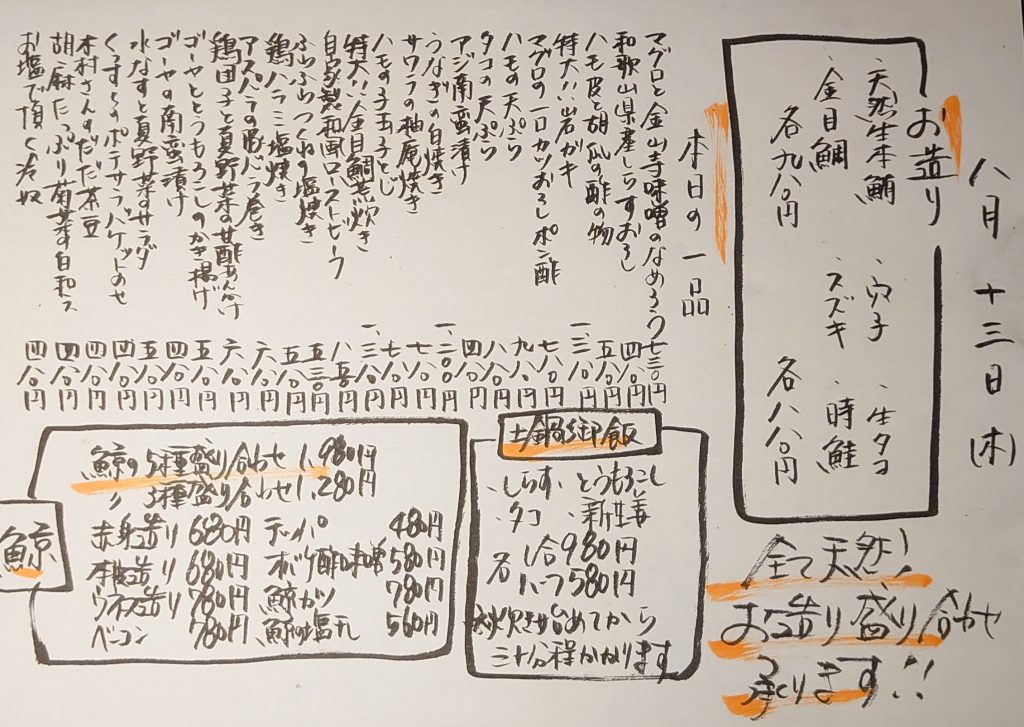 八月十三日(木)
お造り
・天然生本鮪 ・穴子 ・生タコ
・金目鯛 ・スズキ ・時鮭
各九八〇円 各八八〇円
全て天然!
お造り盛り合わせ
承ります!!
本日の一品
マグロと金山寺味噌のなめろう 七三〇円
和歌山県産しらすおろし 四八〇円
ハモ皮と胡瓜の酢の物 五八〇円
特大!!岩ガキ 一、三八〇円
マグロの一口カツおろしポン酢 七八〇円
ハモの天ぷら 九八〇円
タコの天ぷら 八八〇円
アジ南蛮漬け 四八〇円
うなぎの白焼き 一、二〇〇円
サワラの柚庵焼き 七八〇円
ハモの子玉子とじ 七八〇円
特大!!金目鯛荒炊き 一、三八〇円
自家製和風ローストビーフ 八八〇円
ふらふらつくねの塩焼き 五三〇円
鶏ハラミ塩焼き 五八〇円
アスパラの豚バラ巻き 六八〇円
鶏団子と夏野菜の甘酢あんかけ 六八〇円
ゴーヤととうもろこしのかき揚げ 五八〇円
ゴーヤの南蛮漬け 四八〇円
水なすと夏野菜のサラダ 五八〇円
くんすとろのポテサラバケットのせ 四八〇円
木村さんのだだ茶豆 四八〇円
胡麻たっぷり菊菜の白和え 四八〇円
お塩で頂く冷奴 四八〇円
土鍋御飯
・しらす ・とうもろこし
・タコ ・新生姜
各 1合980円
ハーフ580円
※炊き始めてから
三十分程かかります
鯨
鯨の5種盛り合わせ 1,980円
〃 3種盛り合わせ 1,280円
赤身造り 680円 テッパ 480円
本皮造り 680円 オバケ酢味噌 580円
ウネス造り 780円 鯨カツ 780円
ベーコン 780円 鯨の塩干 560円